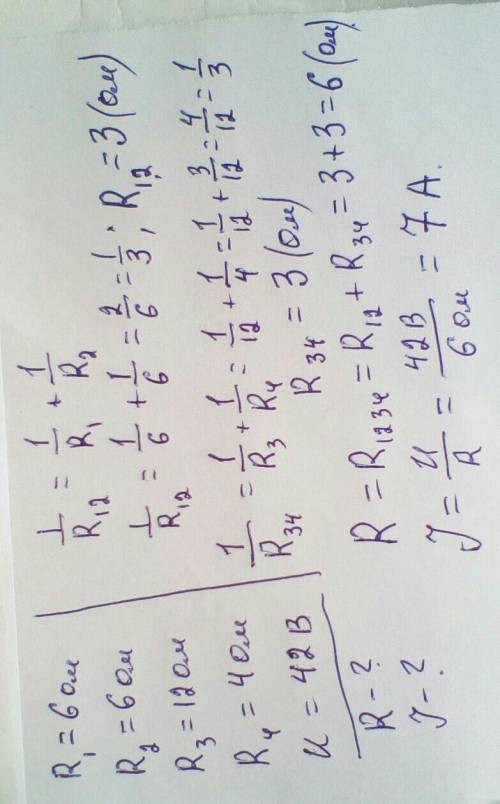 R₁ = 6 Ом
R₂ = 6 Ом
R₃ = 12 Ом
R₄ = 4 Ом
U = 42 В
R - ?
J - ?
1/R₁₂ = 1/R₁ + 1/R₂
1/R₁₂ = 1/6 + 1/6 = 2/6 = 1/3; R₁₂ = 3 (Ом)
1/R₃₄ = 1/R₃ + 1/R₄ = 1/12 + 1/4 = 1/12 + 3/12 = 4/12 = 1/3
R₃₄ = 3 (Ом)
R = R₁₂₃₄ = R₁₂ + R₃₄ = 3 + 3 = 6 (Ом)
J = U/R = 42В/6 Ом = 7 А.